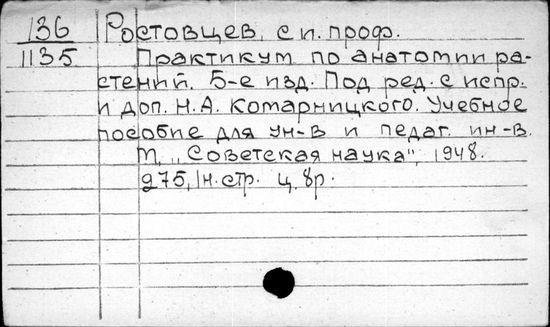 136 Ростовцев, с и. проф.
1135 Практикум по анатомии ра-
стений. 5-е изд. Под ред. с испр.
и доп. Н.А. Комарницкого. Учебное
пособие для ун-в и педаг. ин-в.
М, „Советская наука", 1948.
275, 1н.стр. ц. 8р.